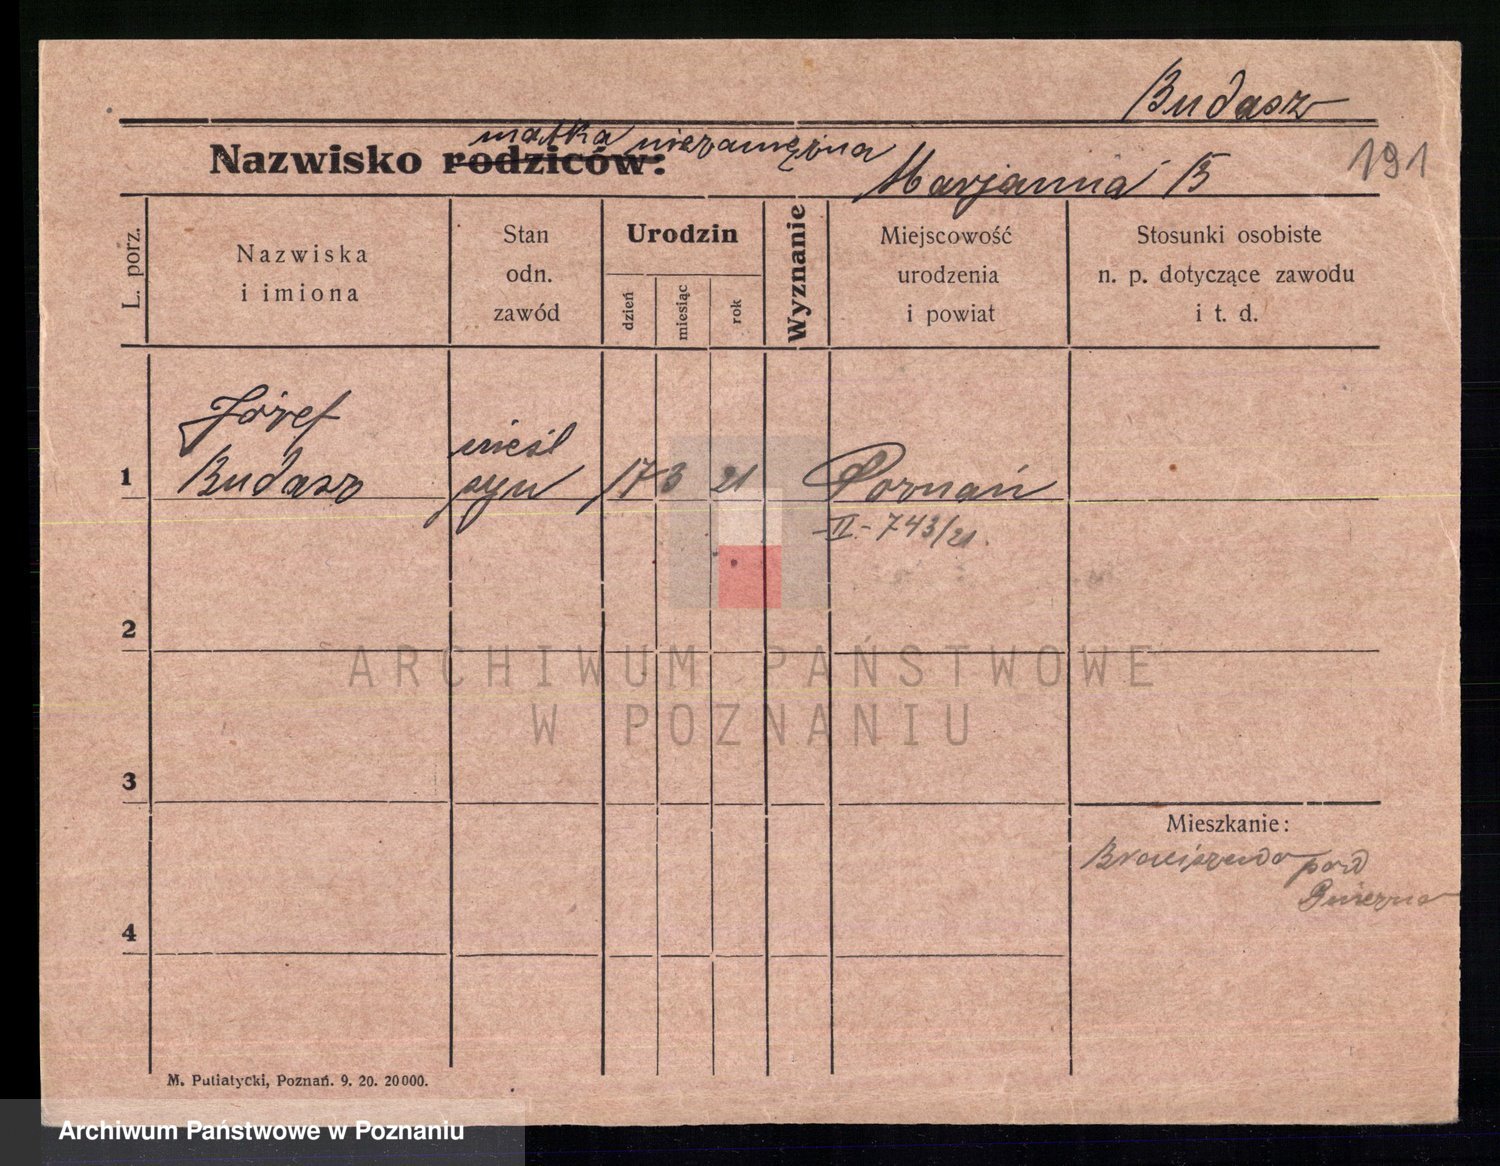 Budasz
matka niezamężna
Nazwisko rodziców:
Marjanna B
191
L. porz.
Nazwiska
i imiona
Stan
odn.
zawód
Urodzin
dzień
miesiąc
rok
Wyznanie
Miejscowość
urodzenia
i powiat
Stosunki osobiste
n. p. dotyczące zawodu
i t. d.
Józef
1 Budasz
nieśl
syn
17 3 21
Poznań
II - 743/21.
2
3
4
ARCHIWUM PAŃSTWOWE
W POZNANIU
Mieszkanie:
pod
M. Putiatycki, Poznań. 9. 20. 20000.
Archiwum Państwowe w Poznaniu